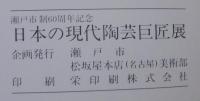 瀬戸市制60周年記念
日本の現代陶芸巨匠展
企画発行 瀬戸市
松坂屋本店(名古屋)美術部
印刷 栄印刷株式会社